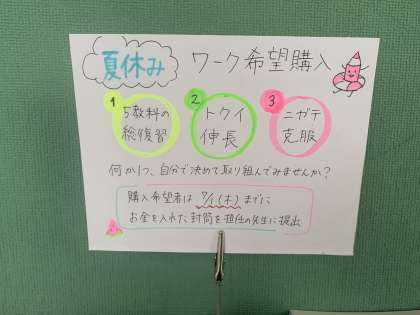 夏休み ワーク希望購入
1 2 3
5教科の総復習
トクイ伸長
ニガテ克服
何か1つ、自分で決めて取り組んでみませんか?
購入希望者は 7/1(木)までに
お金を入れた封筒を担任の先生に提出